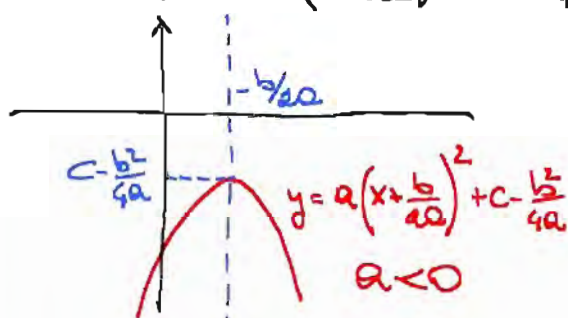 -b/2a
c-b²/4a
y = a(x+b/2a)² + c-b²/4a
a<0